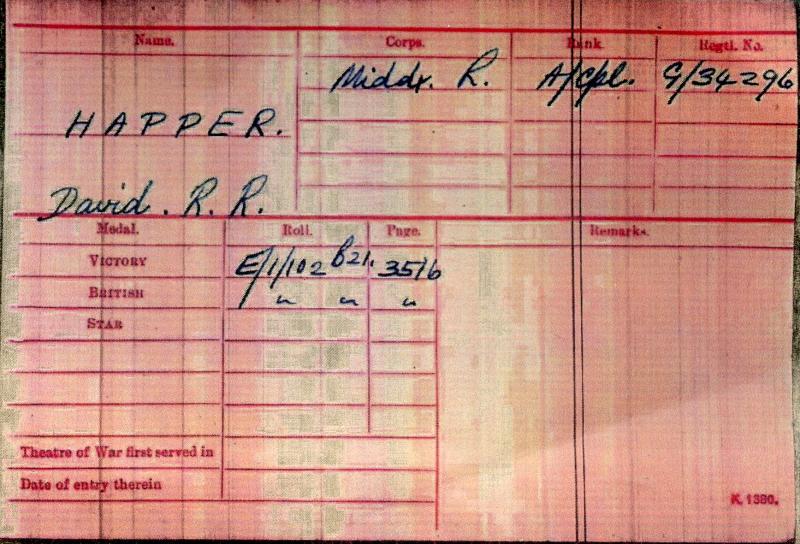 Name. Corps. Rank Regtl. No.
Middx. R. A/Cpl. G/34296
HAPPER.
David. R. R.
Medal. Roll. Page. Remarks.
VICTORY E/1/102 B21. 3516
BRITISH " " "
STAR
Theatre of War first served in
Date of entry therein
K. 1380.